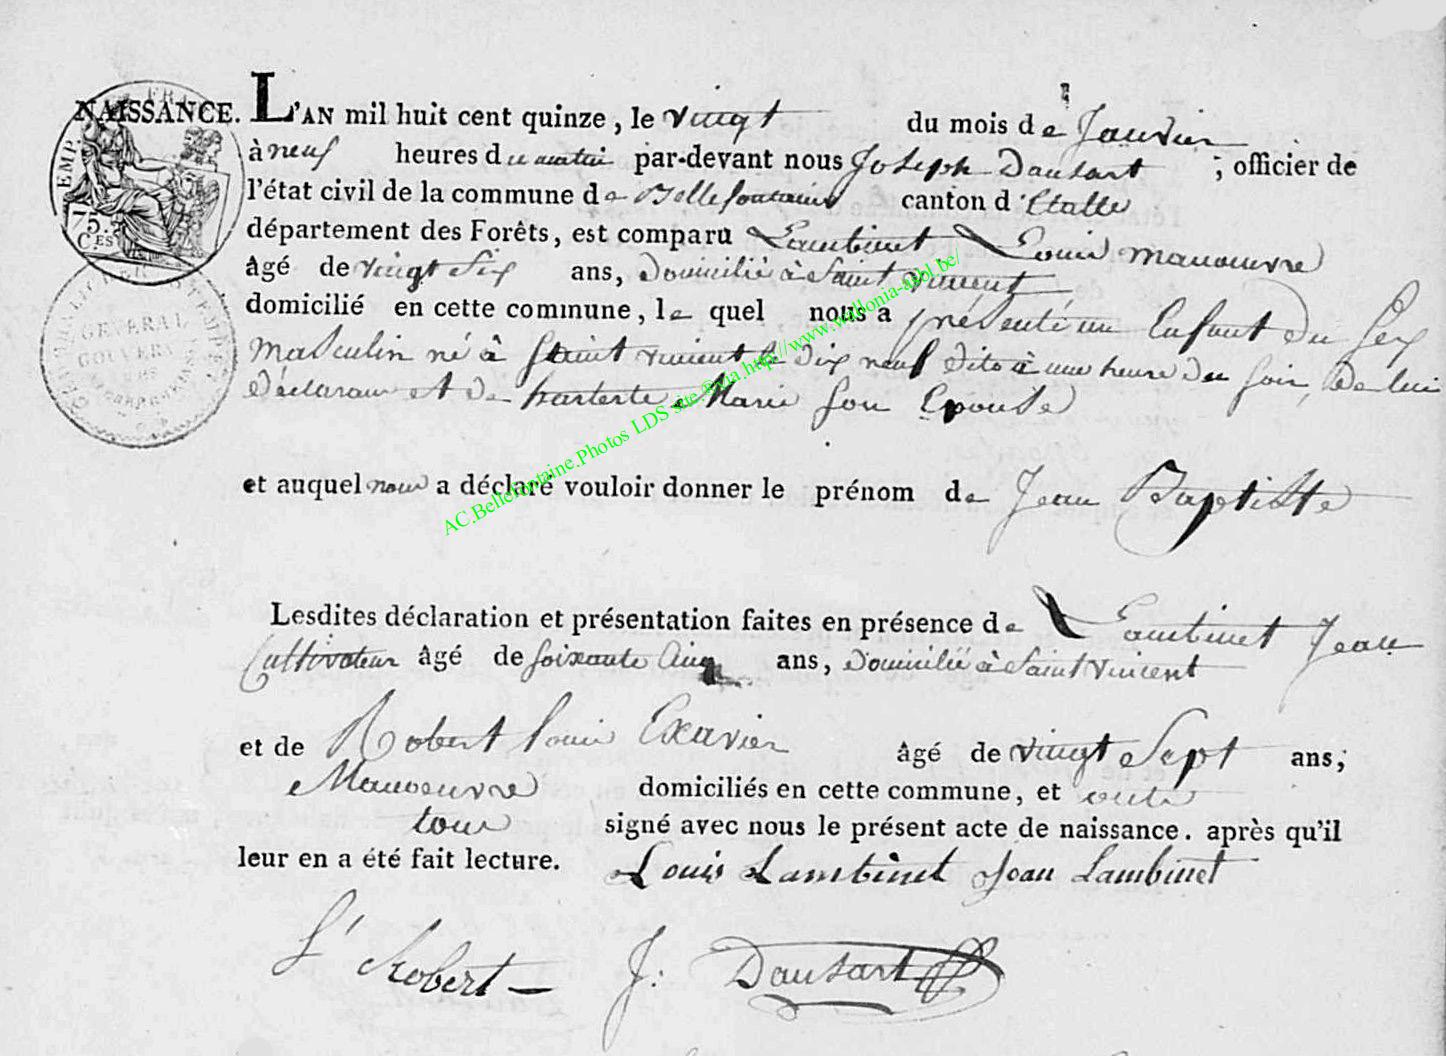 NAISSANCE. L'AN mil huit cent quinze, le vingt du mois de Janvier
à neuf heures du matin par-devant nous Joseph Dausart, officier de
l'état civil de la commune de Bellefontaine canton d'Etalle
département des Forêts, est comparu Lambinet Louis manoeuvre
âgé de vingt Six ans, Domicilié à Saint vincent
domicilié en cette commune, le quel nous a présenté un Enfant du Sex
Masculin né à Saint vincent le dix neuf dito à une heure du Soir, de lui
Déclarant et de Marie Son Epouse
et auquel nous a déclaré vouloir donner le prénom de Jean Baptiste
Lesdites déclaration et présentation faites en présence de Lambinet Jean
Cultivateur âgé de Soixante Cinq ans, Domicilié à Saint Vincent
et de Robert Louis Exavier âgé de vingt Sept ans,
Manoeuvre domiciliés en cette commune, et onts
tous signé avec nous le présent acte de naissance. après qu'il
leur en a été fait lecture. Louis Lambinet Jean Lambinet
L' Robert J. Dausart
EMP. FR
75.
CES
GENERAL
GOUVERN
AC.Bellefontaine.Photos LDS site.®via.http://www.wallonia-asbl.be/